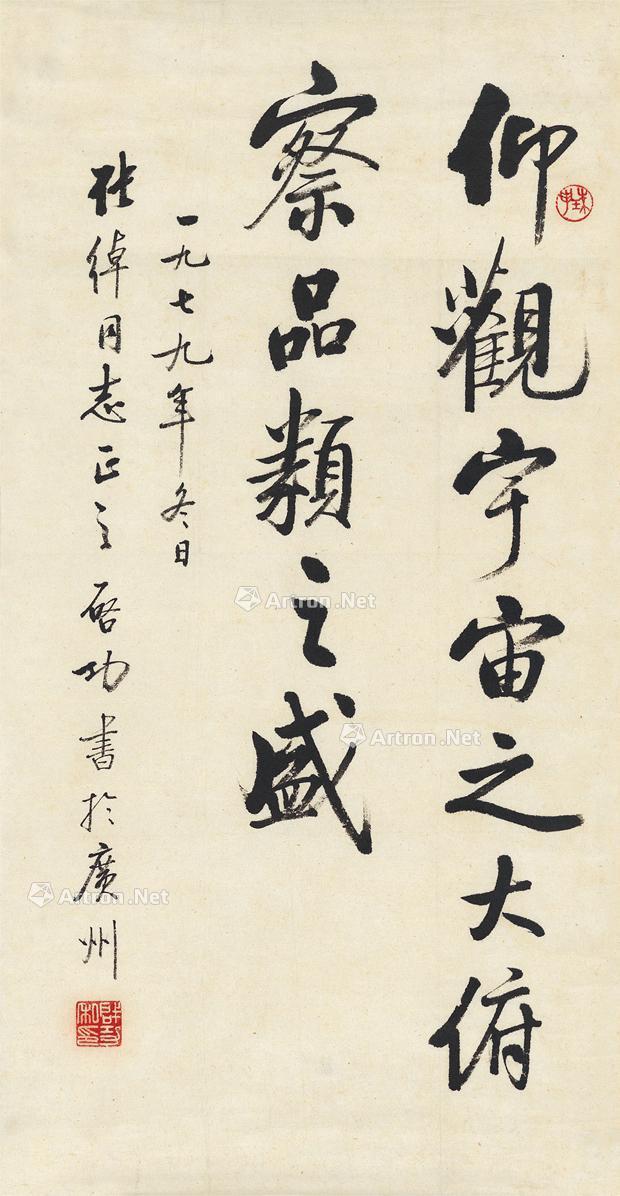 仰觀宇宙之大俯
察品類之盛
一九七九年冬日
綽同志正之 啓功書於廣州
Artron.Net
Artron.Net
Artron.Net